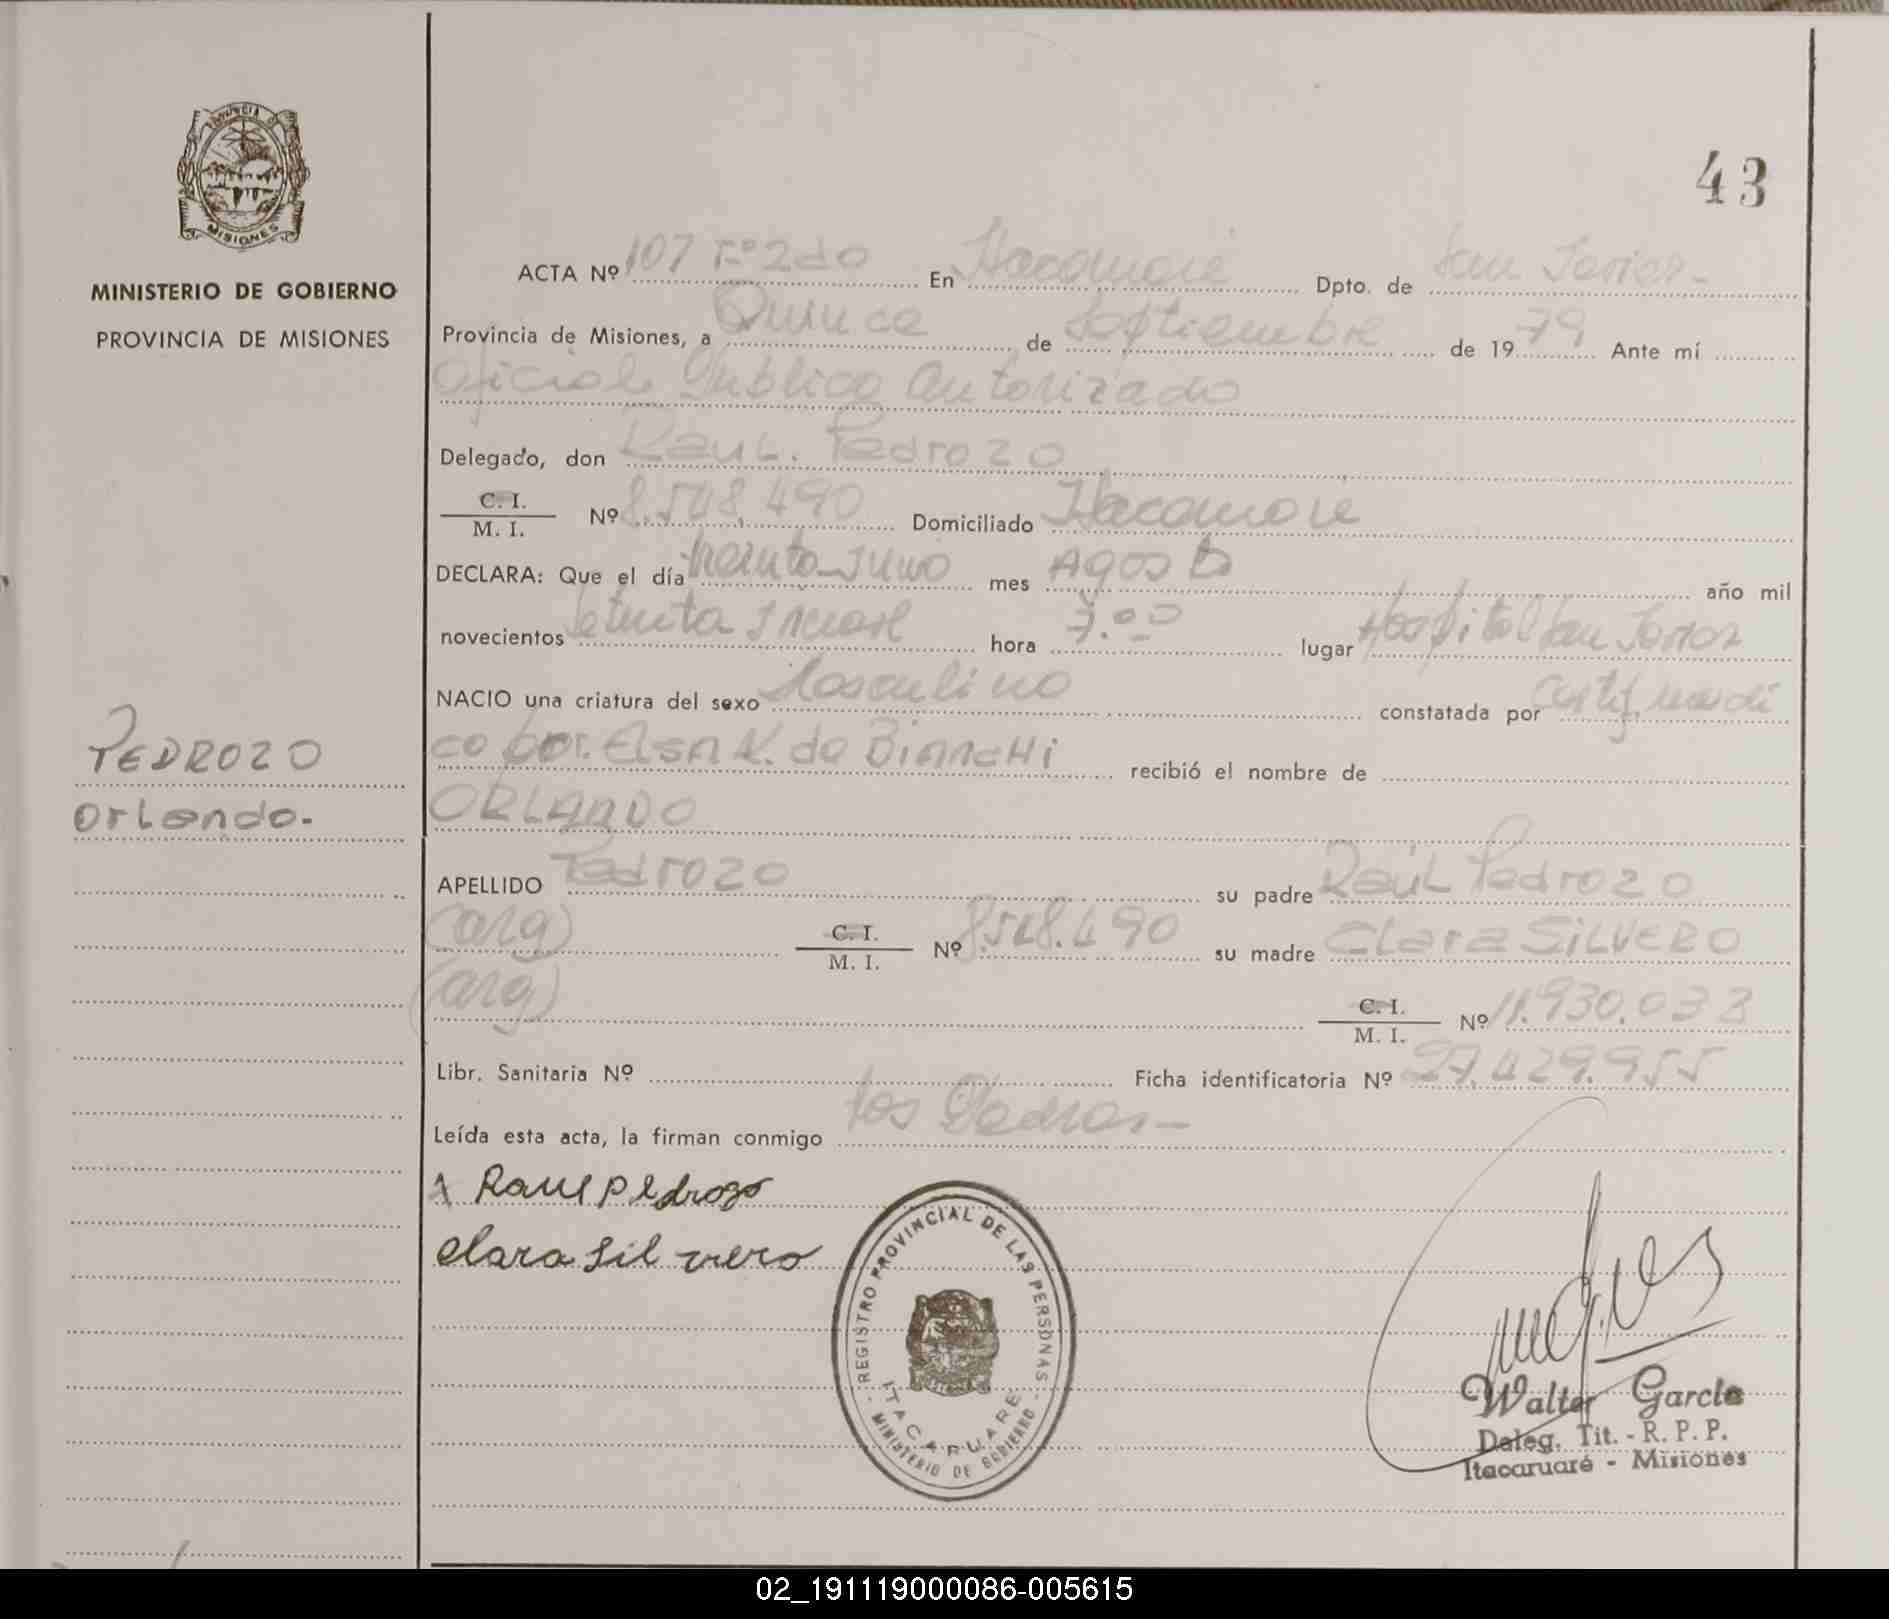 PROVINCIA DE
MISIONES
MINISTERIO DE GOBIERNO
PROVINCIA DE MISIONES
43
ACTA Nº 107 Tº 2do En Itacaruaré Dpto. de San Javier-
Provincia de Misiones, a Quince de Septiembre de 1979 Ante mí
Oficial Público Autorizado
Delegado, don Raul. Pedrozo
C. I. / M. I. Nº 8.548.490 Domiciliado Itacaruaré
DECLARA: Que el día treinta y uno mes Agosto año mil
novecientos setenta y nueve hora 7.00 lugar Hospital San Javier
NACIO una criatura del sexo Masculino constatada por Certif. medi
co por. Elsa K. de Bianchi recibió el nombre de
ORLANDO
PEDROZO
Orlando.
APELLIDO Pedrozo su padre Raúl Pedrozo
(arg) C. I. / M. I. Nº 8.548.490 su madre Clara SILVERO
(arg) C. I. / M. I. Nº 11.930.033
Libr. Sanitaria Nº Ficha identificatoria Nº 27.429.955
Leída esta acta, la firman conmigo los Padres-
Raul pedrozo
Clara Sil vero
REGISTRO PROVINCIAL DE LAS PERSONAS
ITACARUARE
MINISTERIO DE GOBIERNO
Walter García
Deleg. Tit. - R. P. P.
Itacaruaré - Misiones
02_191119000086-005615